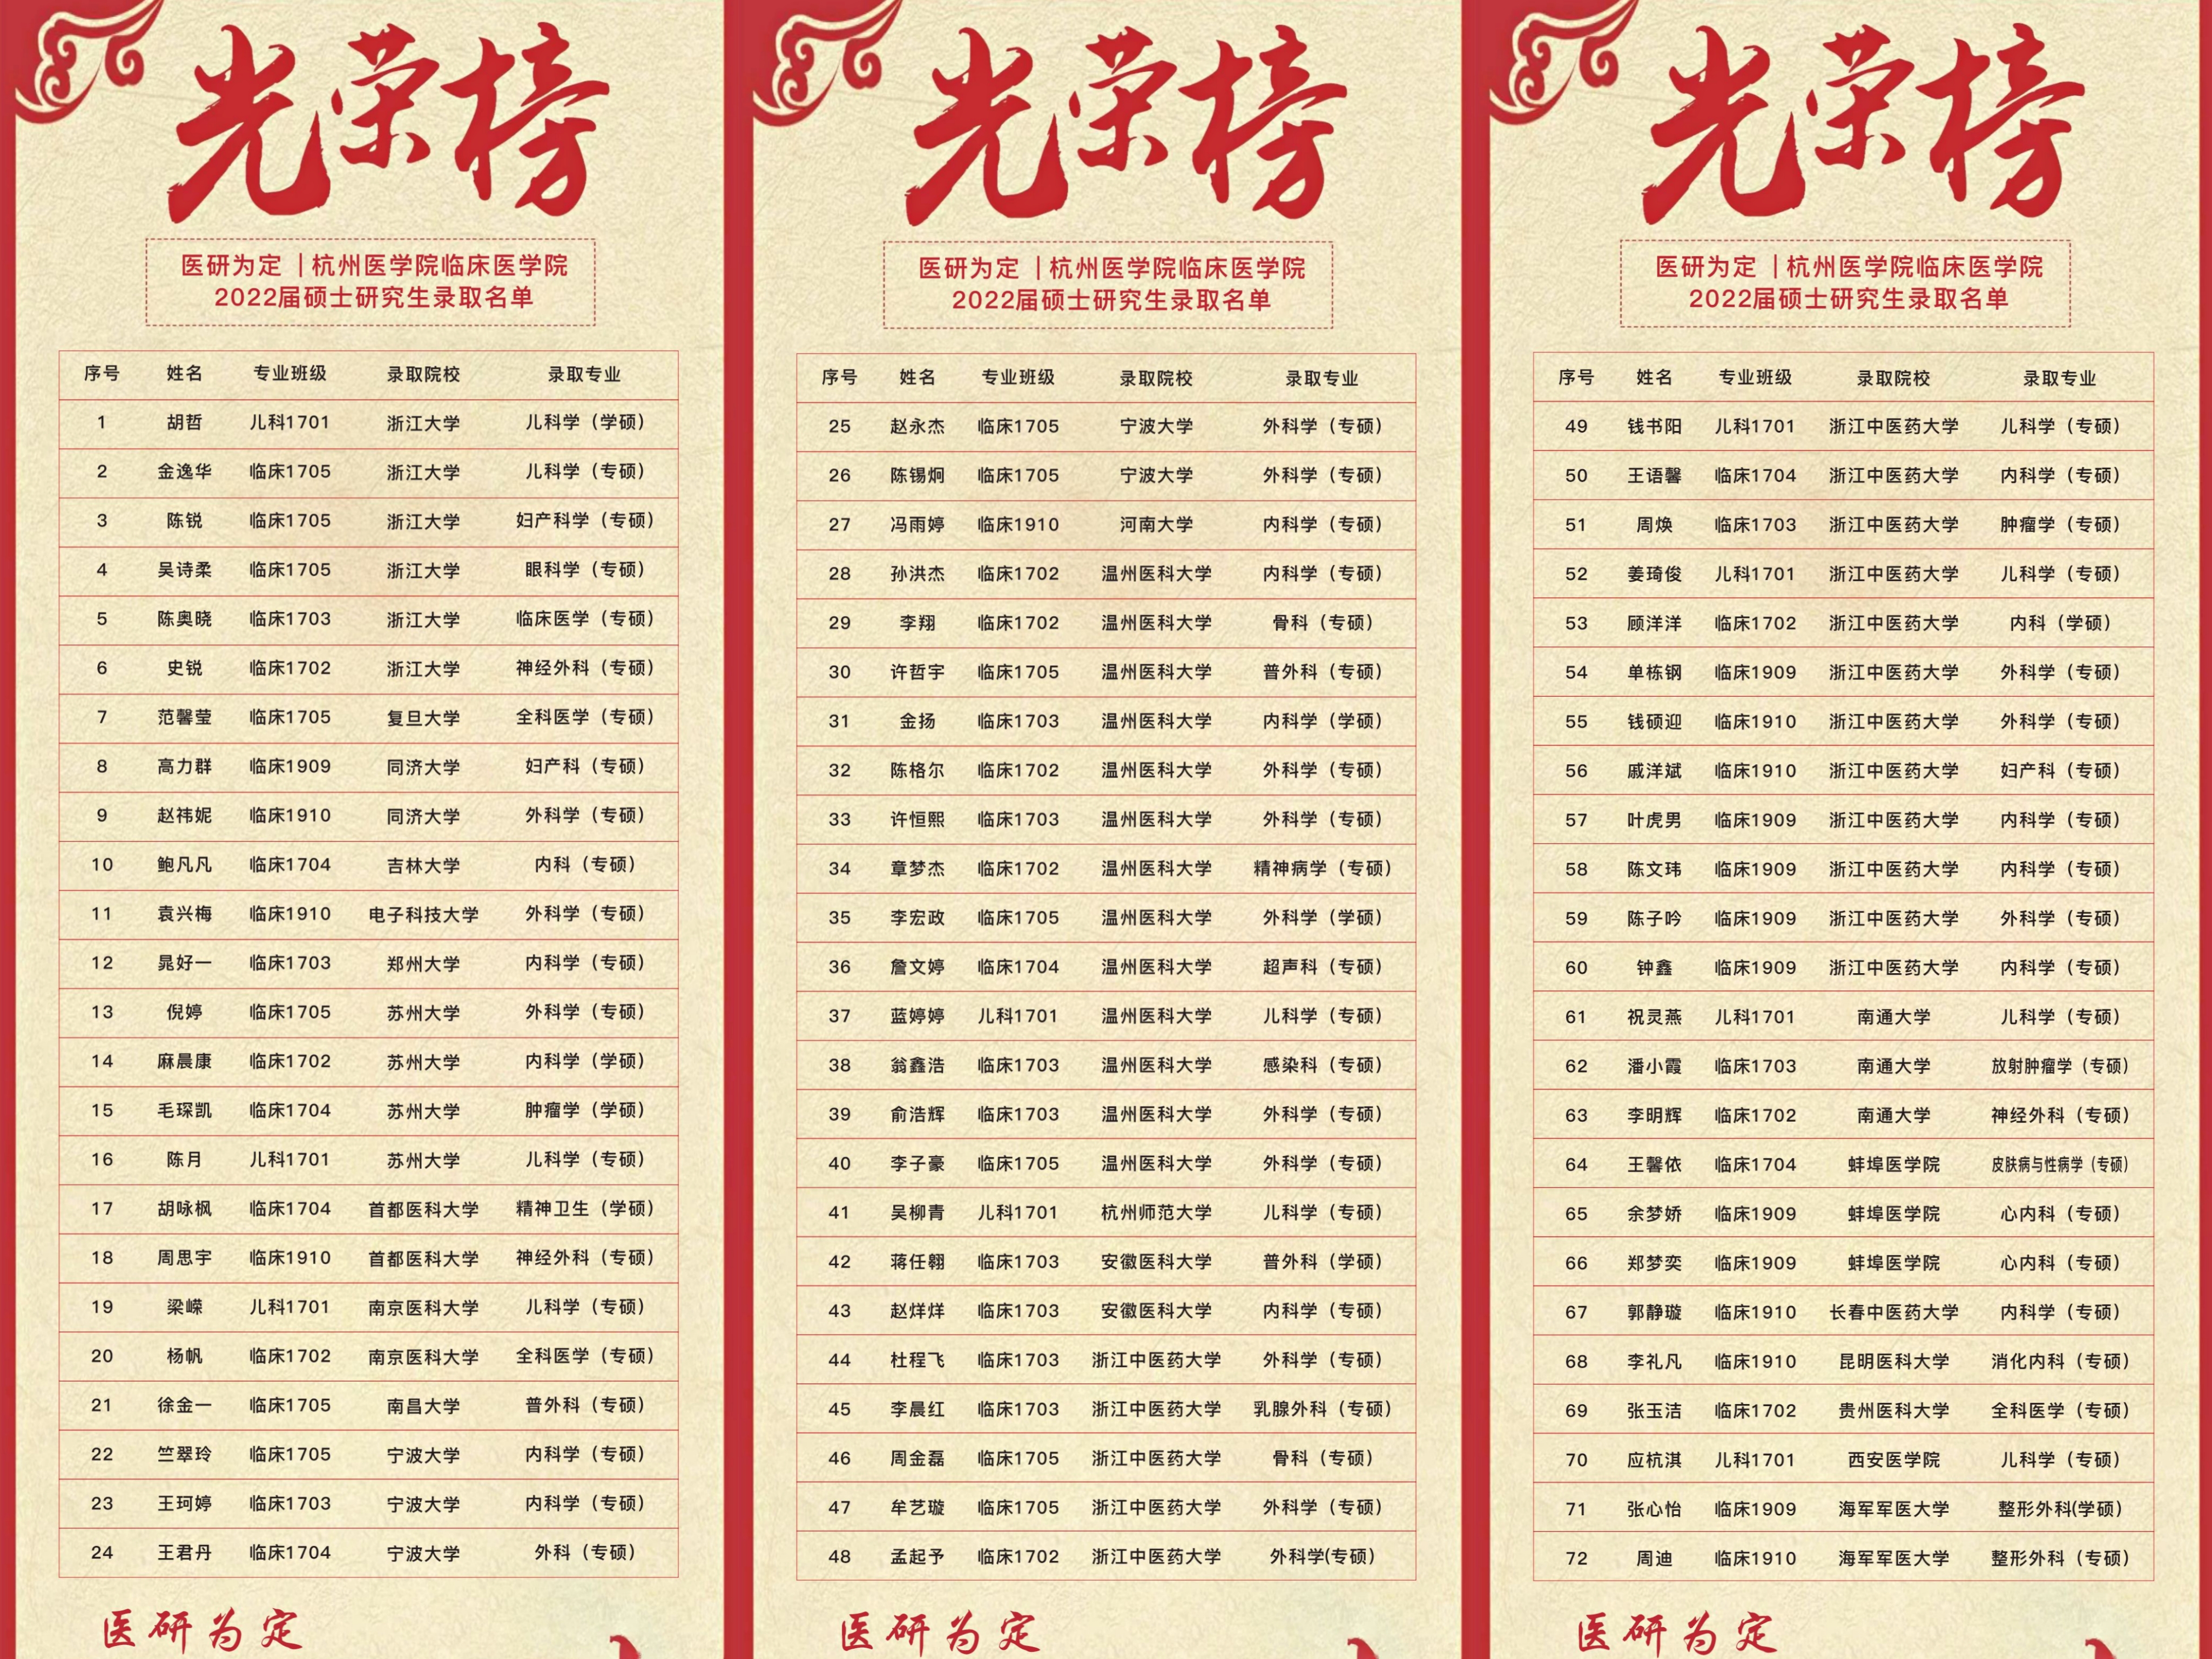 光荣榜
医研为定 | 杭州医学院临床医学院
2022届硕士研究生录取名单
序号 姓名 专业班级 录取院校 录取专业
1 胡哲 儿科1701 浙江大学 儿科学（学硕）
2 金逸华 临床1705 浙江大学 儿科学（专硕）
3 陈锐 临床1705 浙江大学 妇产科学（专硕）
4 吴诗柔 临床1705 浙江大学 眼科学（专硕）
5 陈奥晓 临床1703 浙江大学 临床医学（专硕）
6 史锐 临床1702 浙江大学 神经外科（专硕）
7 范馨莹 临床1705 复旦大学 全科医学（专硕）
8 高力群 临床1909 同济大学 妇产科（专硕）
9 赵祎妮 临床1910 同济大学 外科学（专硕）
10 鲍凡凡 临床1704 吉林大学 内科（专硕）
11 袁兴梅 临床1910 电子科技大学 外科学（专硕）
12 晁好一 临床1703 郑州大学 内科学（专硕）
13 倪婷 临床1705 苏州大学 外科学（专硕）
14 麻晨康 临床1702 苏州大学 内科学（学硕）
15 毛琛凯 临床1704 苏州大学 肿瘤学（学硕）
16 陈月 儿科1701 苏州大学 儿科学（专硕）
17 胡咏枫 临床1704 首都医科大学 精神卫生（学硕）
18 周思宇 临床1910 首都医科大学 神经外科（专硕）
19 梁嵘 儿科1701 南京医科大学 儿科学（专硕）
20 杨帆 临床1702 南京医科大学 全科医学（专硕）
21 徐金一 临床1705 南昌大学 普外科（专硕）
22 竺翠玲 临床1705 宁波大学 内科学（专硕）
23 王珂婷 临床1703 宁波大学 内科学（专硕）
24 王君丹 临床1704 宁波大学 外科（专硕）
医研为定
光荣榜
医研为定 | 杭州医学院临床医学院
2022届硕士研究生录取名单
序号 姓名 专业班级 录取院校 录取专业
25 赵永杰 临床1705 宁波大学 外科学（专硕）
26 陈锡炯 临床1705 宁波大学 外科学（专硕）
27 冯雨婷 临床1910 河南大学 内科学（专硕）
28 孙洪杰 临床1702 温州医科大学 内科学（专硕）
29 李翔 临床1702 温州医科大学 骨科（专硕）
30 许哲宇 临床1705 温州医科大学 普外科（专硕）
31 金扬 临床1703 温州医科大学 内科学（学硕）
32 陈格尔 临床1702 温州医科大学 外科学（专硕）
33 许恒熙 临床1703 温州医科大学 外科学（专硕）
34 章梦杰 临床1702 温州医科大学 精神病学（专硕）
35 李宏政 临床1705 温州医科大学 外科学（学硕）
36 詹文婷 临床1704 温州医科大学 超声科（专硕）
37 蓝婷婷 儿科1701 温州医科大学 儿科学（专硕）
38 翁鑫浩 临床1703 温州医科大学 感染科（专硕）
39 俞浩辉 临床1703 温州医科大学 外科学（专硕）
40 李子豪 临床1705 温州医科大学 外科学（专硕）
41 吴柳青 儿科1701 杭州师范大学 儿科学（专硕）
42 蒋任翱 临床1703 安徽医科大学 普外科（学硕）
43 赵烊烊 临床1703 安徽医科大学 内科学（专硕）
44 杜程飞 临床1703 浙江中医药大学 外科学（专硕）
45 李晨红 临床1703 浙江中医药大学 乳腺外科（专硕）
46 周金磊 临床1705 浙江中医药大学 骨科（专硕）
47 牟艺璇 临床1705 浙江中医药大学 外科学（专硕）
48 孟起予 临床1702 浙江中医药大学 外科学(专硕）
医研为定
光荣榜
医研为定 | 杭州医学院临床医学院
2022届硕士研究生录取名单
序号 姓名 专业班级 录取院校 录取专业
49 钱书阳 儿科1701 浙江中医药大学 儿科学（专硕）
50 王语馨 临床1704 浙江中医药大学 内科学（专硕）
51 周焕 临床1703 浙江中医药大学 肿瘤学（专硕）
52 姜琦俊 儿科1701 浙江中医药大学 儿科学（专硕）
53 顾洋洋 临床1702 浙江中医药大学 内科（学硕）
54 单栋钢 临床1909 浙江中医药大学 外科学（专硕）
55 钱硕迎 临床1910 浙江中医药大学 外科学（专硕）
56 戚洋斌 临床1910 浙江中医药大学 妇产科（专硕）
57 叶虎男 临床1909 浙江中医药大学 内科学（专硕）
58 陈文玮 临床1909 浙江中医药大学 内科学（专硕）
59 陈子吟 临床1909 浙江中医药大学 外科学（专硕）
60 钟鑫 临床1909 浙江中医药大学 内科学（专硕）
61 祝灵燕 儿科1701 南通大学 儿科学（专硕）
62 潘小霞 临床1703 南通大学 放射肿瘤学（专硕）
63 李明辉 临床1702 南通大学 神经外科（专硕）
64 王馨依 临床1704 蚌埠医学院 皮肤病与性病学（专硕）
65 余梦娇 临床1909 蚌埠医学院 心内科（专硕）
66 郑梦奕 临床1909 蚌埠医学院 心内科（专硕）
67 郭静璇 临床1910 长春中医药大学 内科学（专硕）
68 李礼凡 临床1910 昆明医科大学 消化内科（专硕）
69 张玉洁 临床1702 贵州医科大学 全科医学（专硕）
70 应杭淇 儿科1701 西安医学院 儿科学（专硕）
71 张心怡 临床1909 海军军医大学 整形外科(学硕）
72 周迪 临床1910 海军军医大学 整形外科（专硕）
医研为定